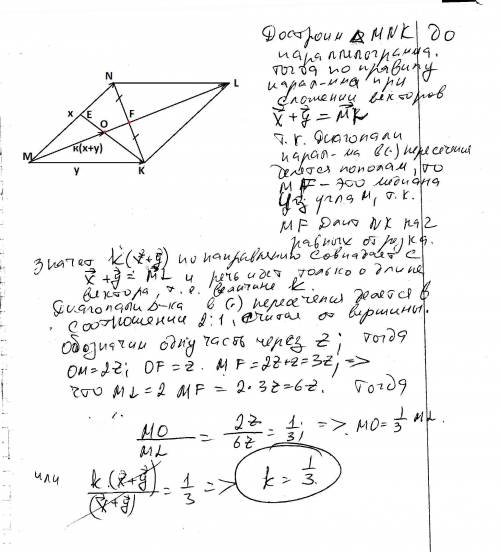 N
L
x
E
F
O
k(x+y)
M
y
K
Достроим △ MNK до
параллелограмма.
тогда по правилу
парал-ма при
сложении векторов
x⃗+y⃗ = M⃗K
т.к. диагонали
парал-ма в (·) пересечения
делятся пополам, то
MF – это медиана
угла M, т.к.
MF делит NK на 2
равных отрезка.
Значит k(x⃗+y⃗) по направлению совпадает с
x⃗+y⃗ = M⃗L и речь идет только о длине
вектора, т.е. величине k.
Диагонали в (·) пересечения делятся в
соотношении 2:1, считая от вершины.
Обозначим одну часть через z; тогда
OM=2z; OF=z. MF=2z+z=3z, =>
что ML=2 MF = 2·3z=6z. Тогда
MO/ML = 2z/6z = 1/3; => MO=1/3 ML.
или k·(x⃗+y⃗)/(x⃗+y⃗) = 1/3 => k = 1/3.